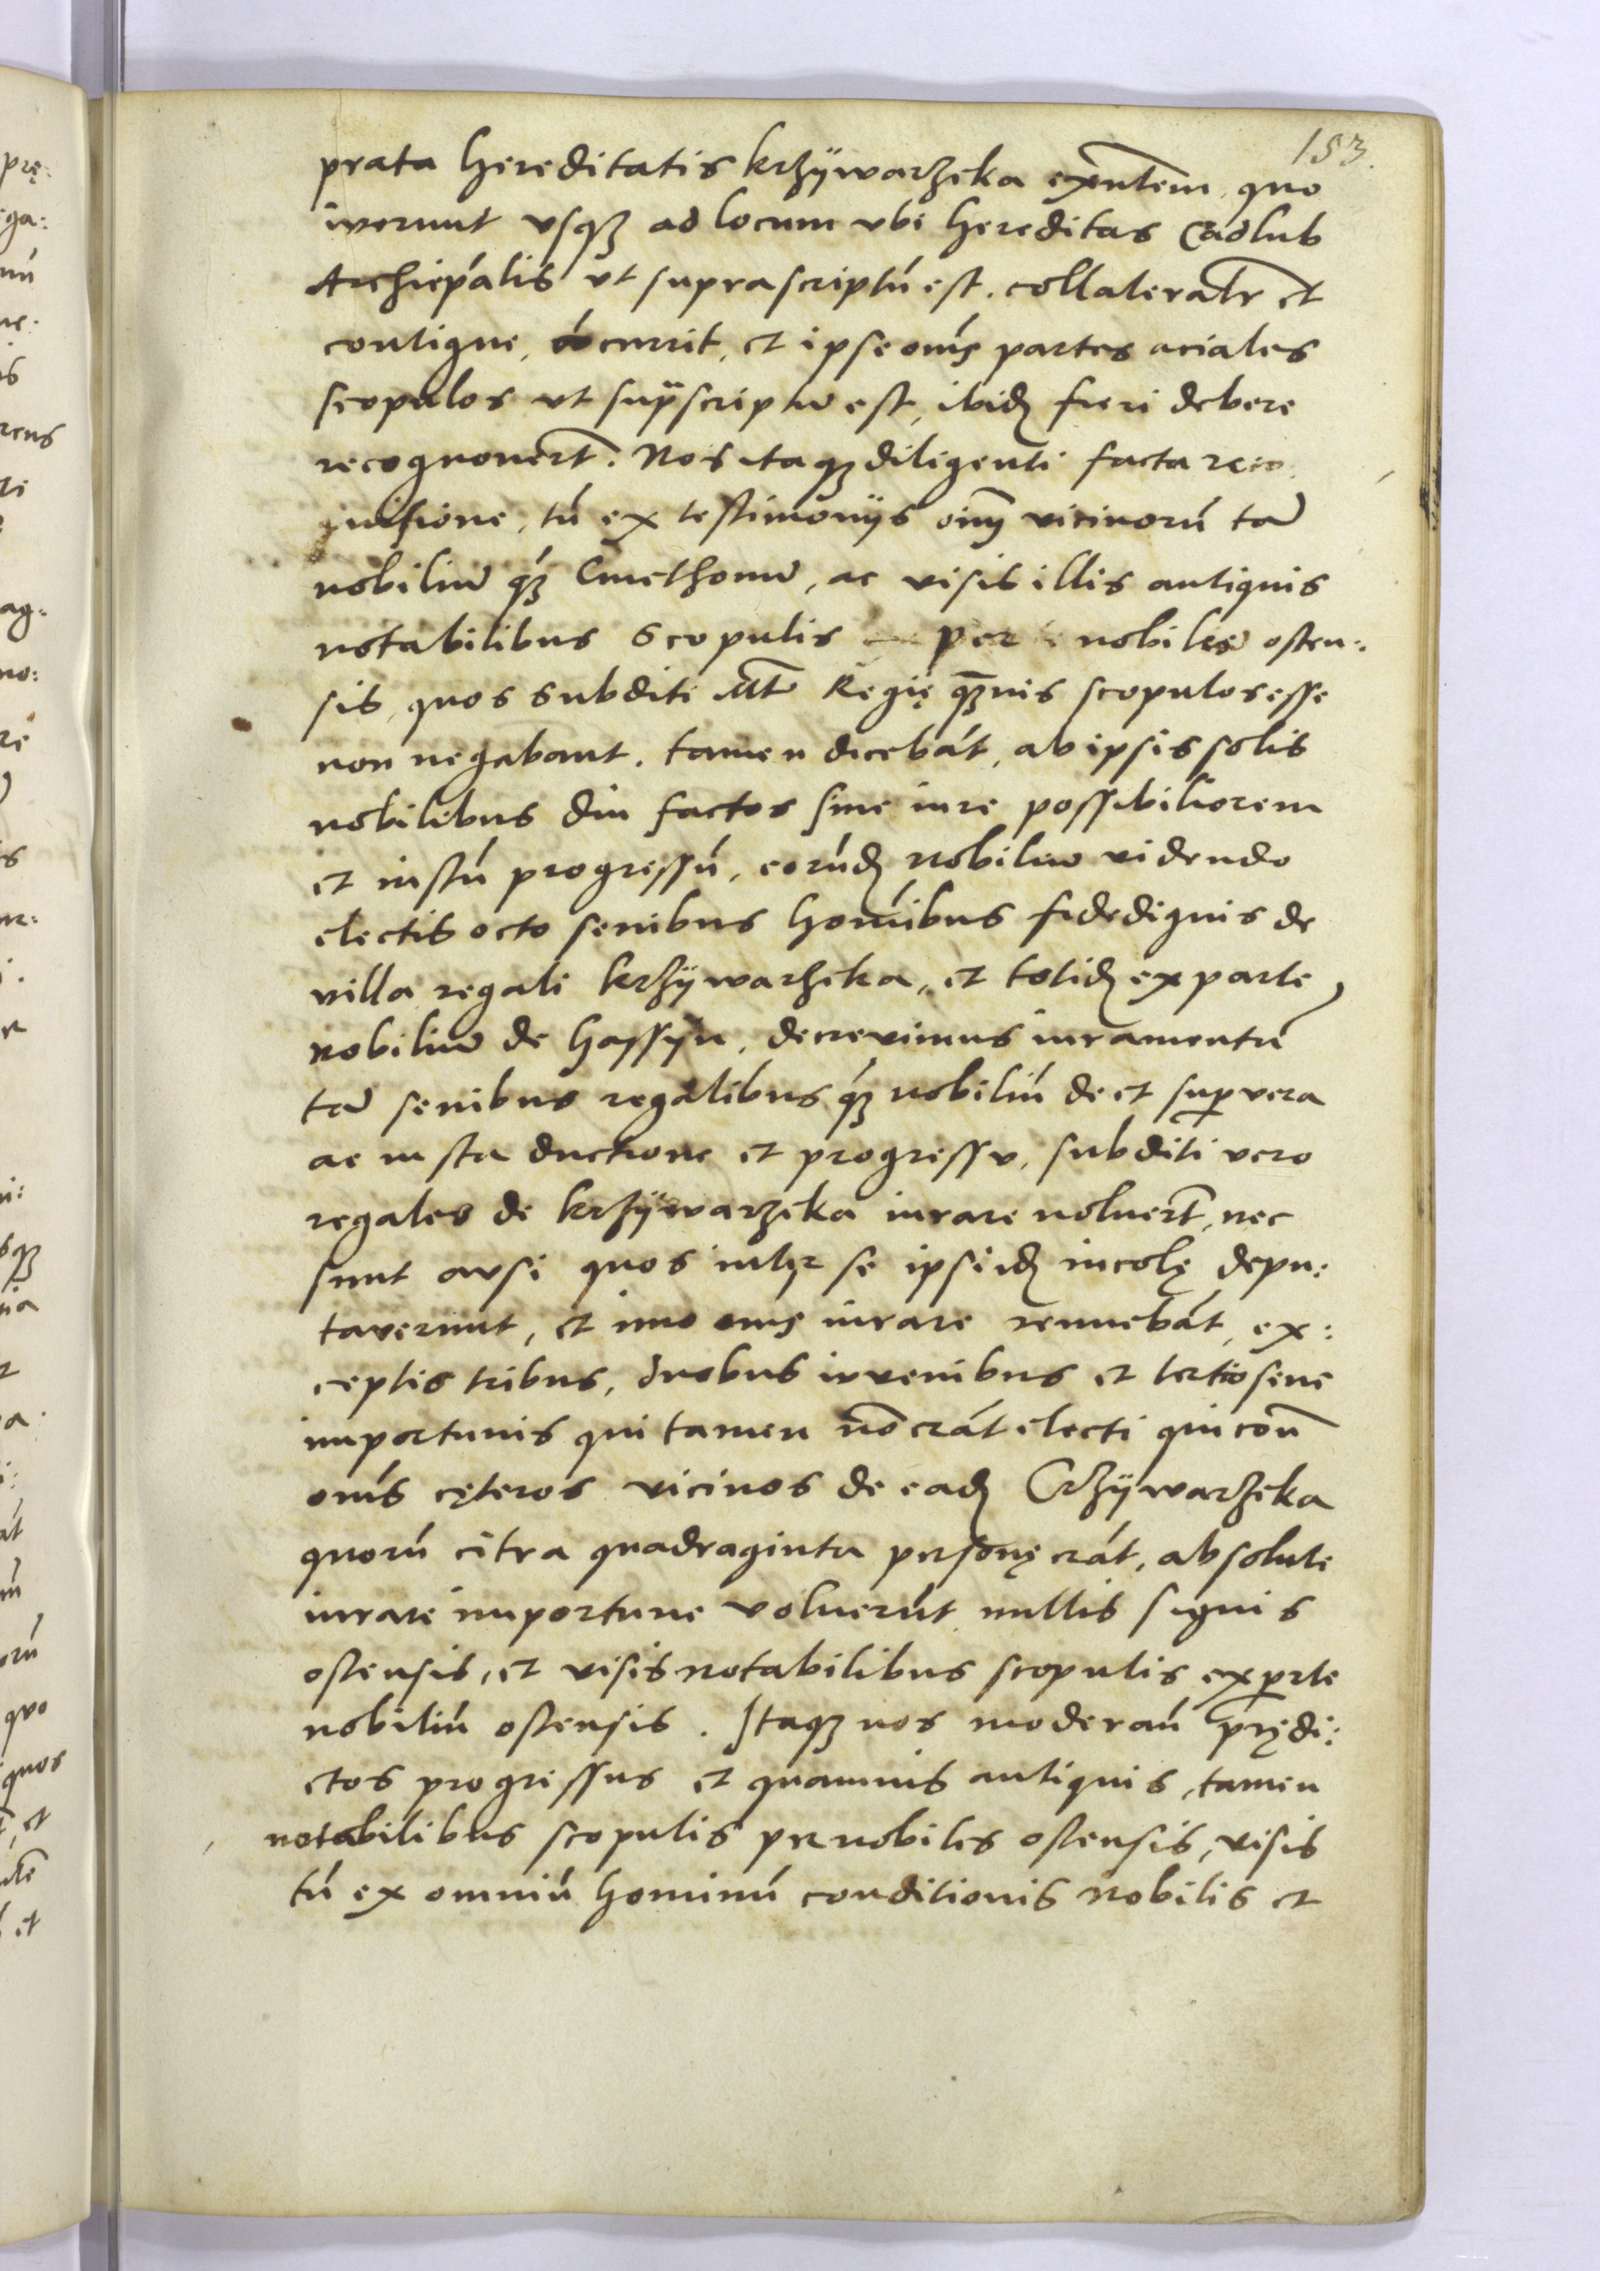 153.
prata hereditatis krzÿwarzeka exñtem quo
iverunt vsqꝫ ad locum vbi hereditas Cadlub
Archiepalis vt suprascriptu est. collateralr et
contigue, occurrit, et ipse oms partes aciales
scopulos vt supscriptu est, ibidꝫ fieri debere
recognouert. Nos itaqꝫ diligenti facta
tu ex testimonÿs oim vicinoru ta
nobiliu qꝫ Cmethonu, ac visis illis antiquis
notabilibus scopulis per nobiles osten:
sis, quos subditi Mt Regię qꝫuis scopulos esse
non negabant. tamen dicebat, ab ipsis solis
nobilibus diu factos sine iure possibiliorem
et iustu progressu, eorudꝫ nobiliu videndo
electis octo senibus homibus fidedignis de
villa regali krzÿwarzeka, et totidꝫ ex parte
nobiliu de hassyn, decrevimus iuramentu
ta senibus regalibus qꝫ nobiliu de et sup vera
ac iusta ductione et progressu, subditi vero
regales de krzÿwarzeka iurare noluert, nec
sunt ausi quos inter se ipsi idꝫ incolę depu:
taverunt, et imo oms iurare rennuebat, ex:
ceptis tribus, duobus iuvenibus et tertio sene
importunis qui tamen no erat electi qui con
oms cęteros vicinos de eadꝫ Crzÿwarzeka
quoru citra quadraginta personę erat, absolute
iurare importune voluerut nullis signis
ostensis, et visis notabilibus scopulis ex parte
nobiliu ostensis. Itaqꝫ nos moderan prędi:
ctos progressus et quamuis antiquis, tamen
notabilibus scopulis per nobiles ostensis, visis
tu ex omniu hominu conditionis nobilis et